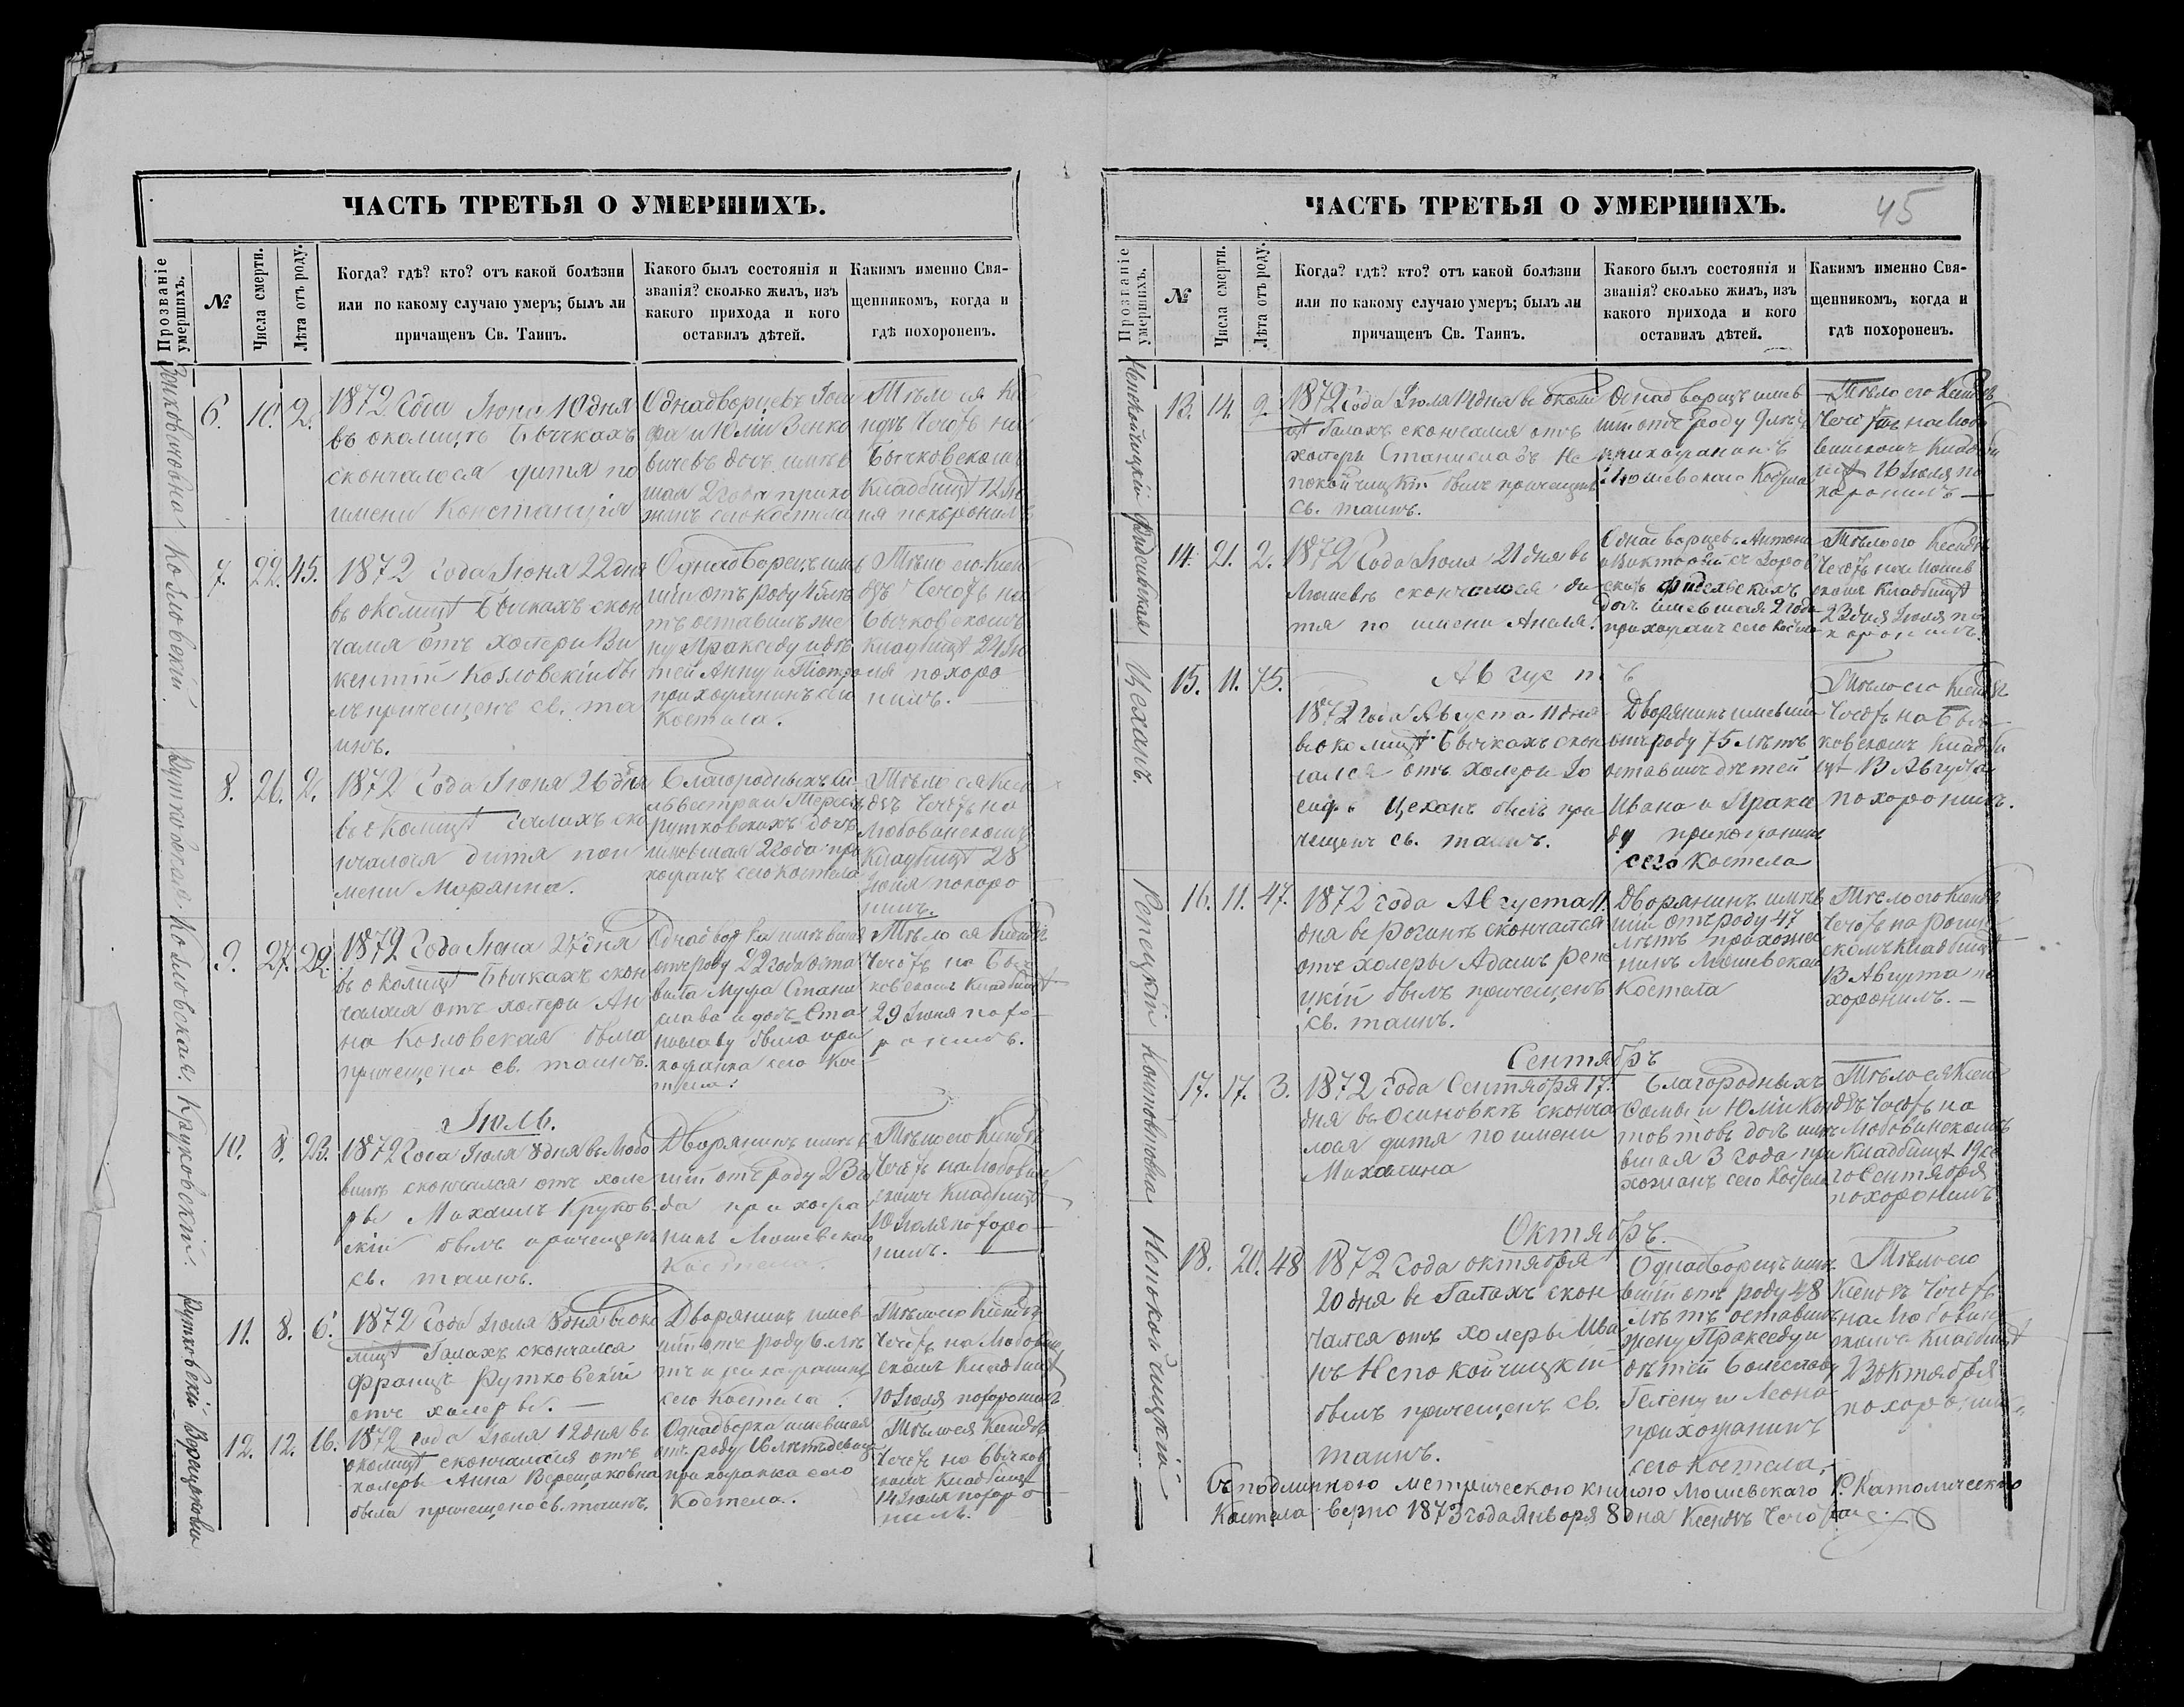 ЧАСТЬ ТРЕТЬЯ О УМЕРШИХЪ.
Прозваніе умершихъ.
№
Числа смерти.
Лѣта отъ роду.
Когда? гдѣ? кто? отъ какой болѣзни
или по какому случаю умеръ; былъ ли
причащенъ Св. Таинъ.
Какого былъ состоянія и
званія? сколько жилъ, изъ
какого прихода и кого
оставилъ дѣтей.
Какимъ именно Свя-
щенникомъ, когда и
гдѣ похороненъ.
6. 10. 2.
1872 Года Іюня 10 дня
въ околицѣ Бычкахъ
скончалося дитя по
имени Констанція
Однадворцевъ
и Юліи Зенко
вичевъ дочь имѣв
шая 2 года прихо
жанъ сего костела
Тѣло ея Кс
ндзъ Чечотъ на
Бычковскомъ
Кладбищѣ 12 Ію
ня похоронилъ
Козловскій.
7. 22. 45.
1872 года Іюня 22 дня
въ околицѣ Бычкахъ скон
чался отъ холеры Ви
кентій Козловскій бы
лъ причещенъ св. та
инъ.
Однадворецъ имѣв
шій отъ роду 45 лѣ
тъ оставилъ же
ну Пракседу и дѣ
тей Анну и Піотра
прихожанинъ сего
Костела.
Тѣло его Ксен
дзъ Чечотъ на
Бычковскомъ
кладбищѣ 24 Ію
ня похоро
нилъ.
Рутковская
8. 26. 2.
1872 Года Іюня 26 дня
въ околицѣ Галахъ ско
нчалося дитя по и
мени Марянна.
Благородныхъ Си
львестра и Тересы
Рутковскихъ дочь
имевшая 2 года при
хожанъ сего Костела
Тѣло ея Ксен
дзъ Чечотъ на
Любовинскомъ
Кладбищѣ 28
Іюня похоро
нилъ.
Козловская.
9. 27. 22.
1872 Года Іюня 27 дня
въ околицѣ Бычкахъ скон
чалася отъ холеры Ан
на Козловская была
причещена св. таинъ.
Однадворка имѣвшая
отъ роду 22 года оста
вила мужа Стани
слава и дочь Ста
ниславу была при
хожанка сего Кос
тела.
Тѣло ея Ксендзъ
Чечотъ на Быч
ковскомъ Кладбищѣ
29 Іюня похо
ронилъ.
Круковскій.
Іюль.
10. 8. 23.
1872 Года Іюля 8 дня въ Любо
винѣ скончался отъ холе
ры Михаилъ Круков
скій былъ причещенъ
св. таинъ.
Дворянинъ имѣв
шій отъ роду 23 го
да прихожа
нинъ Мошевскаго
Костела.
Тѣло его Ксендзъ
Чечотъ на Любовин
скомъ Кладбищѣ
10 Іюля похоро
нилъ.
Рутковскій
11. 8. 6.
1872 Года Іюля 8 дня въ око
лицѣ Галахъ скончался
Францъ Рутковскій
отъ холеры.
Дворянинъ имев
шій отъ роду 6 лѣ
тъ прихожанинъ
сего Костела.
Тѣло его Ксендзъ
Чечотъ на Любовин
скомъ Кладбищѣ
10 Іюля похоронилъ
12. 12. 16.
1872 года Іюля 12 дня въ
околицѣ скончалася отъ
холеры Анна Верещаковна
была причещена св. таинъ.
Однадворка имевшая
отъ роду 16 лѣтъ девица
прихожанка сего
Костела.
Тѣло ея Ксендзъ
Чечотъ на Бычков
скомъ Кладбищѣ
14 Іюля похоро
нилъ.
ЧАСТЬ ТРЕТЬЯ О УМЕРШИХЪ.
45
Прозваніе умершихъ.
№
Числа смерти.
Лѣта отъ роду.
Когда? гдѣ? кто? отъ какой болѣзни
или по какому случаю умеръ; былъ ли
причащенъ Св. Таинъ.
Какого былъ состоянія и
званія? сколько жилъ, изъ
какого прихода и кого
оставилъ дѣтей.
Какимъ именно Свя-
щенникомъ, когда и
гдѣ похороненъ.
Непокойчицкій
13. 14. 9.
1872 Года Іюля 14 дня въ околи
цѣ Галахъ скончался отъ
холеры Станиславъ Не
покойчицкій былъ причещенъ
св. таинъ.
Однадворецъ имев
шій отъ роду 9 лѣтъ
прихожанинъ
Мошевскаго Костела
Тѣло его Ксендзъ
Чечотъ на Любо
винскомъ Кладби
щѣ 16 Іюля по
хоронилъ
14. 21. 2.
1872 Года Іюля 21 дня въ
Мошевѣ скончалося ди
тя по имени Анеля.
Однадворцевъ Антона
и Викторіи
дочь имевшая 2 года
прихожанъ сего Костела
Тѣло его Ксендзъ
Чечотъ на Мошев
скомъ Кладбищѣ
23 дня Іюля по
хоронилъ.
Цеханъ.
Августъ
15. 11. 75.
1872 года Августа 11 дня
въ околицѣ Бычкахъ скон
чался отъ холеры Іо
сифъ Цеханъ былъ при
чещенъ св. таинъ.
Дворянинъ имевшій
отъ роду 75 лѣтъ
оставилъ дѣтей
Ивана и Праксе
ду прихожанинъ
сего Костела
Тѣло его Ксендзъ
Чечотъ на Быч
ковскомъ Кладби
щѣ 13 Августа
похоронилъ.
Репецкій
16. 11. 47.
1872 года Августа 11.
дня въ Рогинѣ скончался
отъ холеры Адамъ Репе
цкій былъ причещенъ
св. таинъ.
Дворянинъ имѣв
шій отъ роду 47
лѣтъ прихожа
нинъ Мошевскаго
Костела
Тѣло его Ксендзъ
Чечотъ на Рогин
скомъ Кладбищѣ
13 Августа по
хоронилъ.
Контовтовна
Сентябрь
17. 17. 3.
1872 года Сентября 17.
дня въ Осиновкѣ сконча
лося дитя по имени
Михалина
Благородныхъ
и Юліи Кон
товтовъ дочь имѣ
вшая 3 года при
хожанъ сего Костела
Тѣло ея Ксен
дзъ Чечотъ на
Любовинскомъ
Кладбищѣ 19
го Сентября
похоронилъ
Непокойчицкій
Октябрь.
18. 20. 48
1872 Года октября
20 дня въ Галахъ скон
чался отъ холеры Ива
нъ Непокойчицкій
былъ причещенъ св.
таинъ.
Однадворецъ имѣ
вшій отъ роду 48
лѣтъ оставилъ
жену Пракседу и
дѣтей Болеслава
Гелену и Леона
прихожанинъ
сего Костела.
Тѣло его
Ксендзъ Чечотъ
на Любовин
скомъ Кладбищѣ
23 Октября
похоронилъ
Съ подлинною метрическою книгою Мошевскаго Р. Католическаго
Костела верно 1873 года Января 8 дня Ксендзъ Чечотъ